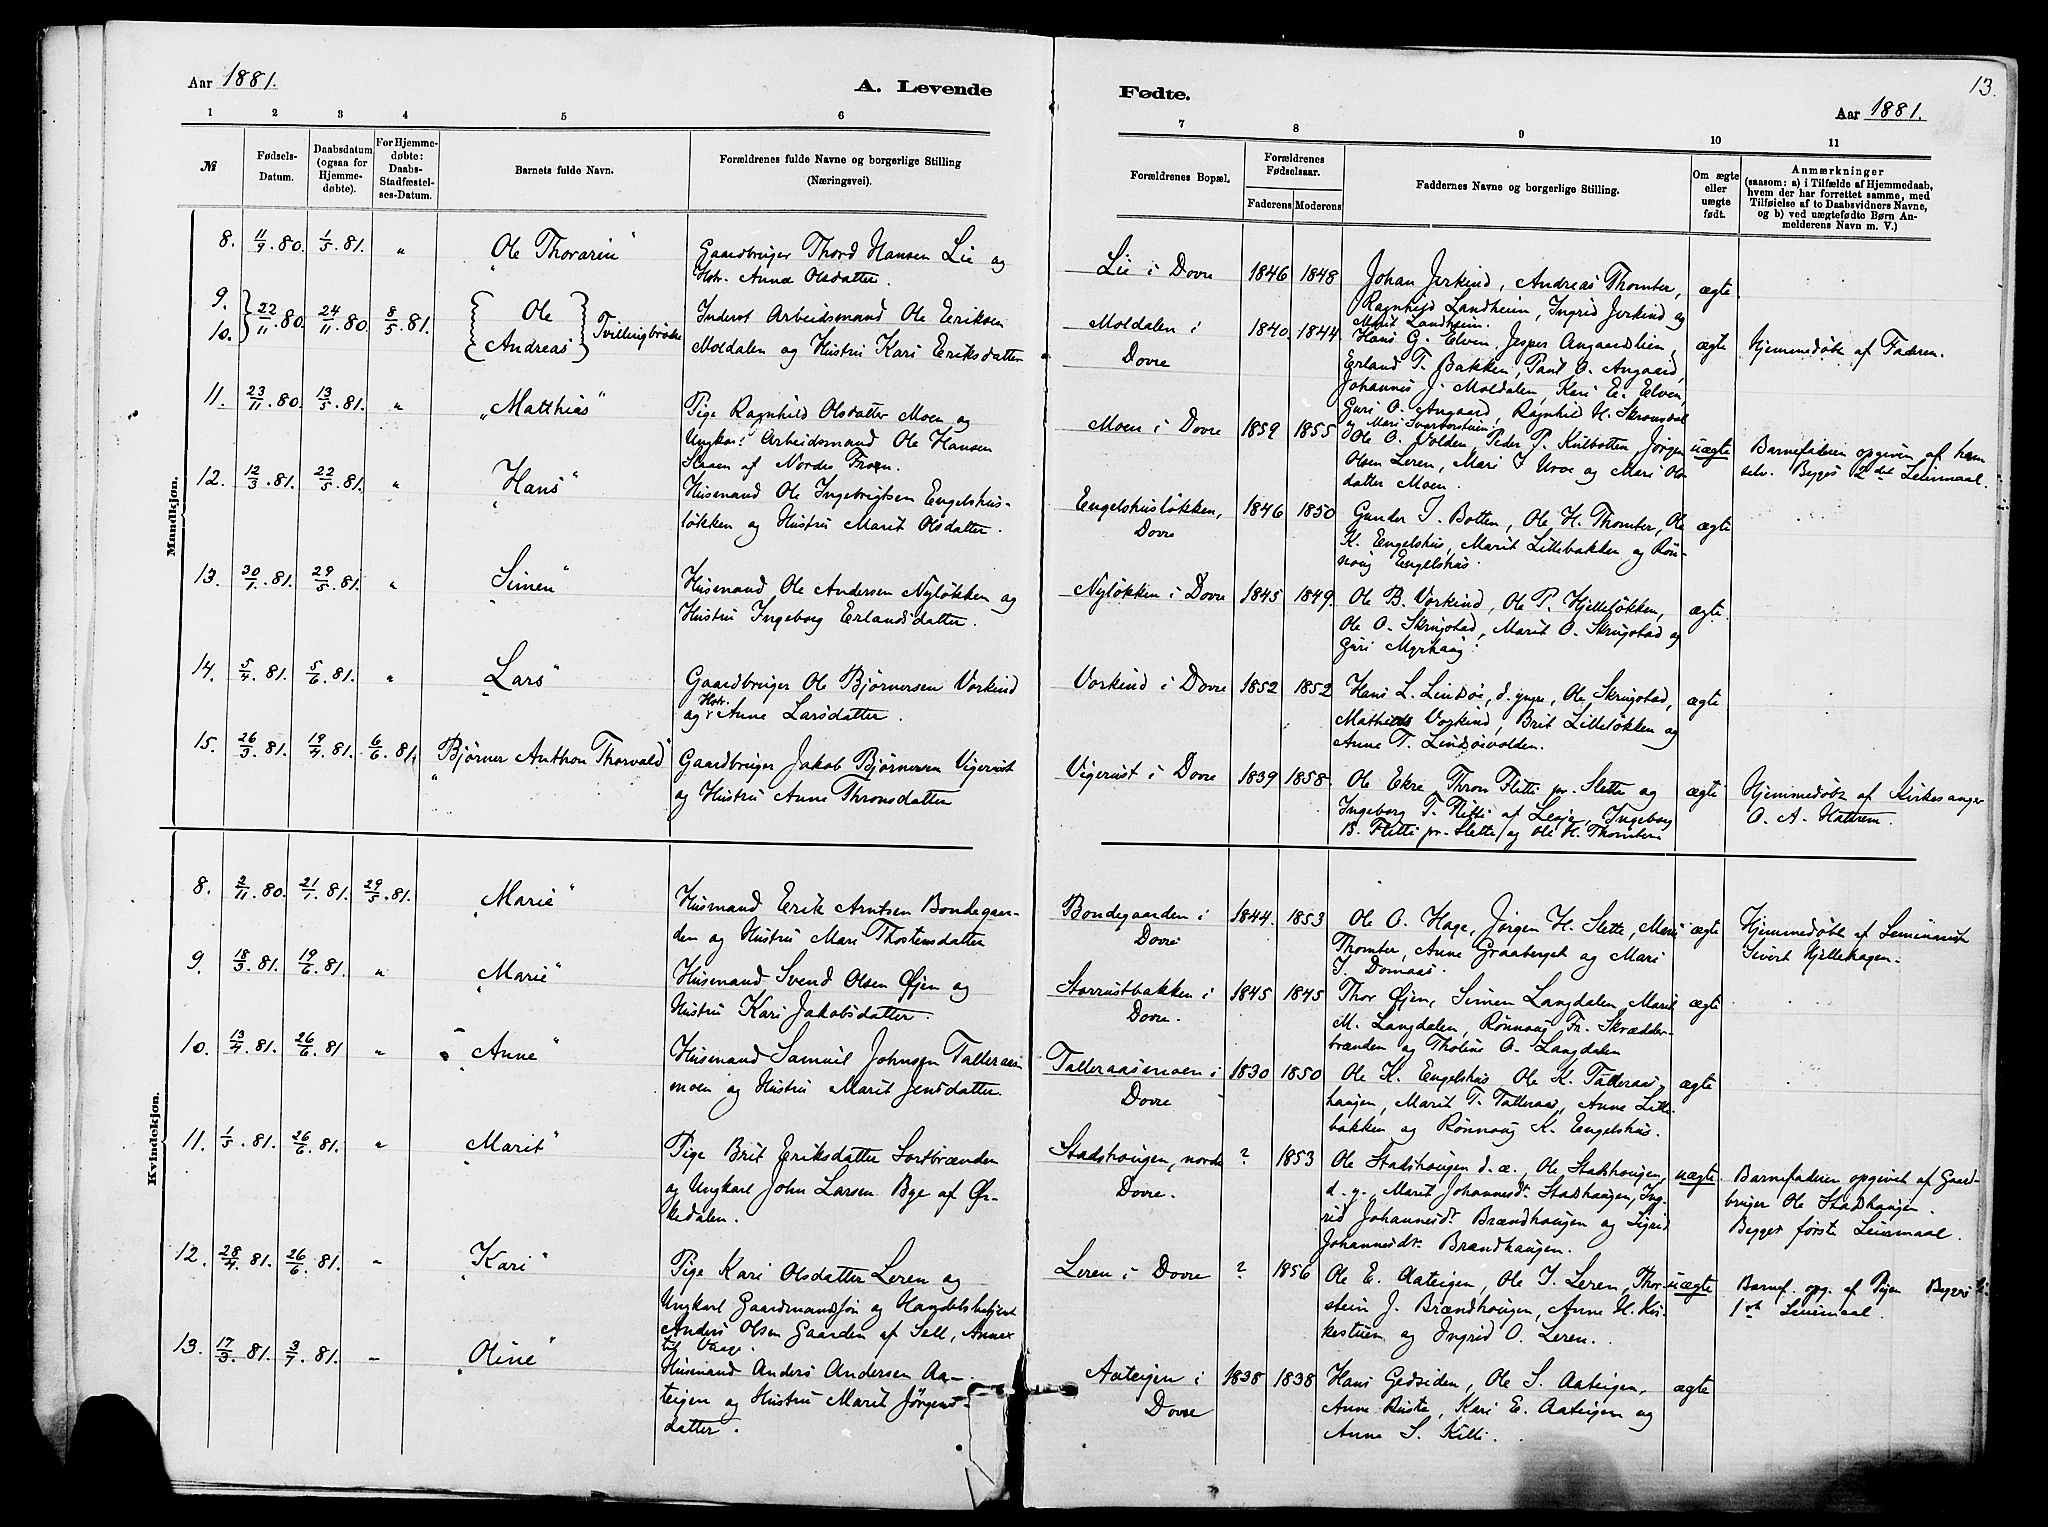 Aar 1881.
A. Levende
Fødte.
13.
Aar 1881.
1 2 3 4 5 6 7 8 9 10 11
№
Fødsels-
Datum.
Daabsdatum
(ogsaa for
Hjemme-
døbte).
For Hjemme-
døbte:
Daabs-
Stadfæstel-
ses-Datum.
Barnets fulde Navn.
Forældrenes fulde Navne og borgerlige Stilling
(Næringsvei).
Forældrenes Bopæl.
Forældrenes
Fødselsaar.
Faderens Moderens
Faddernes Navne og borgerlige Stilling.
Om ægte
eller
uægte
født.
Anmærkninger
(saasom: a) i Tilfælde af Hjemmedaab,
hvem der har forrettet samme, med
Tilføielse af to Daabsvidners Navne,
og b) ved uægtefødte Børn An-
melderens Navn m. V.)
Mandkjøn.
8. 11/9.80. 1/5.81. " "Ole Thorarin"
Gaardbruger Thord Hansen Lie og
Hstr. Anne Olsdatter.
Lie i Dovre 1846 1848
Johan Jerkind, Andreas Thomter,
Ragnhild Landheim, Ingrid Jerkind og
Marit Landheim.
ægte
9.
10. 22/11.80. 24/11.80. 8/5.81.
Ole
Andreas
Tvillingbrødre
Inderst Arbeidsmand Ole Eriksen
Moldalen og Hustru Kari Eriksdatter
Moldalen i
Dovre
1840. 1844.
Hans G. Elven, Jesper Angaardslien,
Erland T. Bakken, Paul O. Angaard,
Johannes J. Moldalen, Kari E. Elven,
Guri O. Angaard, Ragnhild H.
og Mari
ægte
Hjemmedøbt af Faderen.
11. 23/11.80. 13/5.81. " "Matthias"
Pige Ragnhild Olsdatter Moen og
Ungkar. Arbeidsmand Ole Hansen
Staaen af Nordre Fron.
Moen i Dovre 1859 1855
Ole O. Volden, Peder P. Kulbotten, Jörgen
Olsen Leren, Mari I Uroe og Mari Ols
datter Moen.
uægte
Barnefaderen opgiven af ham
selv. Begges 2det Leiermaal.
12. 12/3.81. 22/5.81. " "Hans"
Husmand Ole Ingebrigtsen Engelshus-
løkken og Hustru Marit Olsdatter.
Engelshusløkken,
Dovre
1846 1850
Gunder I. Botten, Ole H. Thomter, Ole
K. Engelshus, Marit Lillebakken og Røn-
naug Engelshus.
ægte
13. 30/1.81. 29/5.81. " "Simen"
Husmand Ole Andersen Nyløkken og
Hustru Ingeborg Erlandsdatter.
Nyløkken i Dovre 1845 1849.
Ole B. Vorkind, Ole P. Hjelleløkken,
Ole O. Skrugstad, Marit O. Skrugstad og
Guri Myrhaug.
ægte.
14. 5/4.81. 5/6.81. " "Lars"
Gaardbruger Ole Bjørnersen Vorkind
og Hstr. Anne Larsdatter.
Vorkind i Dovre 1852 1852
Hans L. Lindsøe, d. yngre, Ole Skrugstad,
Mathias Vorkind, Brit Lilleløkken og
Anne T. Lindsøevolden.
ægte
15. 26/3.81. 19/4.81. 6/6.81. "Bjørner Anthon Thorvald"
Gaardbruger Jakob Bjørnersen Vigerust
og Hustru Anne Thronsdatter
Vigerust i Dovre 1839 1858.
Ole Ekre Thron Flitti pr. Slette og
Ingeborg T. Flitti af Lesje, Ingeborg
B. Flitti pr. Slette og Ole H. Thomter.
ægte
Hjemmedøbt af Kirkesanger
O. A. Hattrem.
Kvindekjøn.
8. 2/11.80. 21/1.81. 29/5.81. "Marie"
Husmand Erik Arntsen Bondegaar-
den og Hustru Mari Thostensdatter
Bondegaarden i
Dovre
1844. 1853
Ole O. Hage, Jörgen H. Slette, Mari
Thomter, Anne Graaberget og Mari
I. Domaas.
ægte
Hjemmedøbt af Seminarist
Sivert Hjellehagen.
9. 18/3.81. 19/6.81. " "Marie"
Husmand Svend Olsen Øjen og
Hustru Kari Jakobsdatter.
Storrustbakken i
Dovre.
1845 1845
Thor Øjen, Simen Langdalen, Marit
M. Langdalen, Rønnaug Fr. Skrædder-
brænden og Tholine O. Langdalen
ægte
10. 13/4.81. 26/6.81 " "Anne"
Husmand Samuel Johnsen Talleraas
moen og Hustru Marit Jensdatter.
Talleraasmoen i
Dovre
1830 1850
Ole K. Engelshus Ole K. Talleraas-
haugen, Marit T. Talleraas, Anne Lille-
bakken og Rønnaug K. Engelshus.
ægte
11. 1/5.81. 26/6.81. " "Marit"
Pige Brit Eriksdatter Sortbrænden
og Ungkarl John Larsen Bye af Ør-
kedalen.
Stadshaugen, nordre
Dovre.
? 1853
Ole Stadshaugen d. æ., Ole Stadshaugen,
d. y., Marit Johannesdt. Stadshaugen, Ing-
rid Johannesdt. Brændhaugen og Sigrid
Johannesdt. Brændhaugen.
uægte.
Barnefaderen opgivet af Gaard-
bruger Ole Stadshaugen.
Begges første Leiermaal.
12. 28/4.81. 26/6.81. " "Kari"
Pige Kari Olsdatter Leren og
Ungkarl Gaardmandssøn og Handelsbetjent
Anders Olsen Gaarden af Sell, Annex
til Vaage.
Leren i Dovre ? 1856
Ole E. Aateigen, Ole I. Leren, Thor-
stein J. Brændhaugen, Anne H. Kir-
kestuen og Ingrid O. Leren.
uægte
Barnef. opg. af Pigen Begges
1ste Leiermaal.
13. 17/3.81. 3/7.81. - "Oline"
Husmand Anders Andersen Aa-
teigen og Hustru Marit Jørgens-
datter.
Aateigen i
Dovre
1838 1838
Hans Gedsiden, Ole S. Aateigen,
Anne Ruste, Kari E. Aateigen og
Anne S. Killi.
ægte